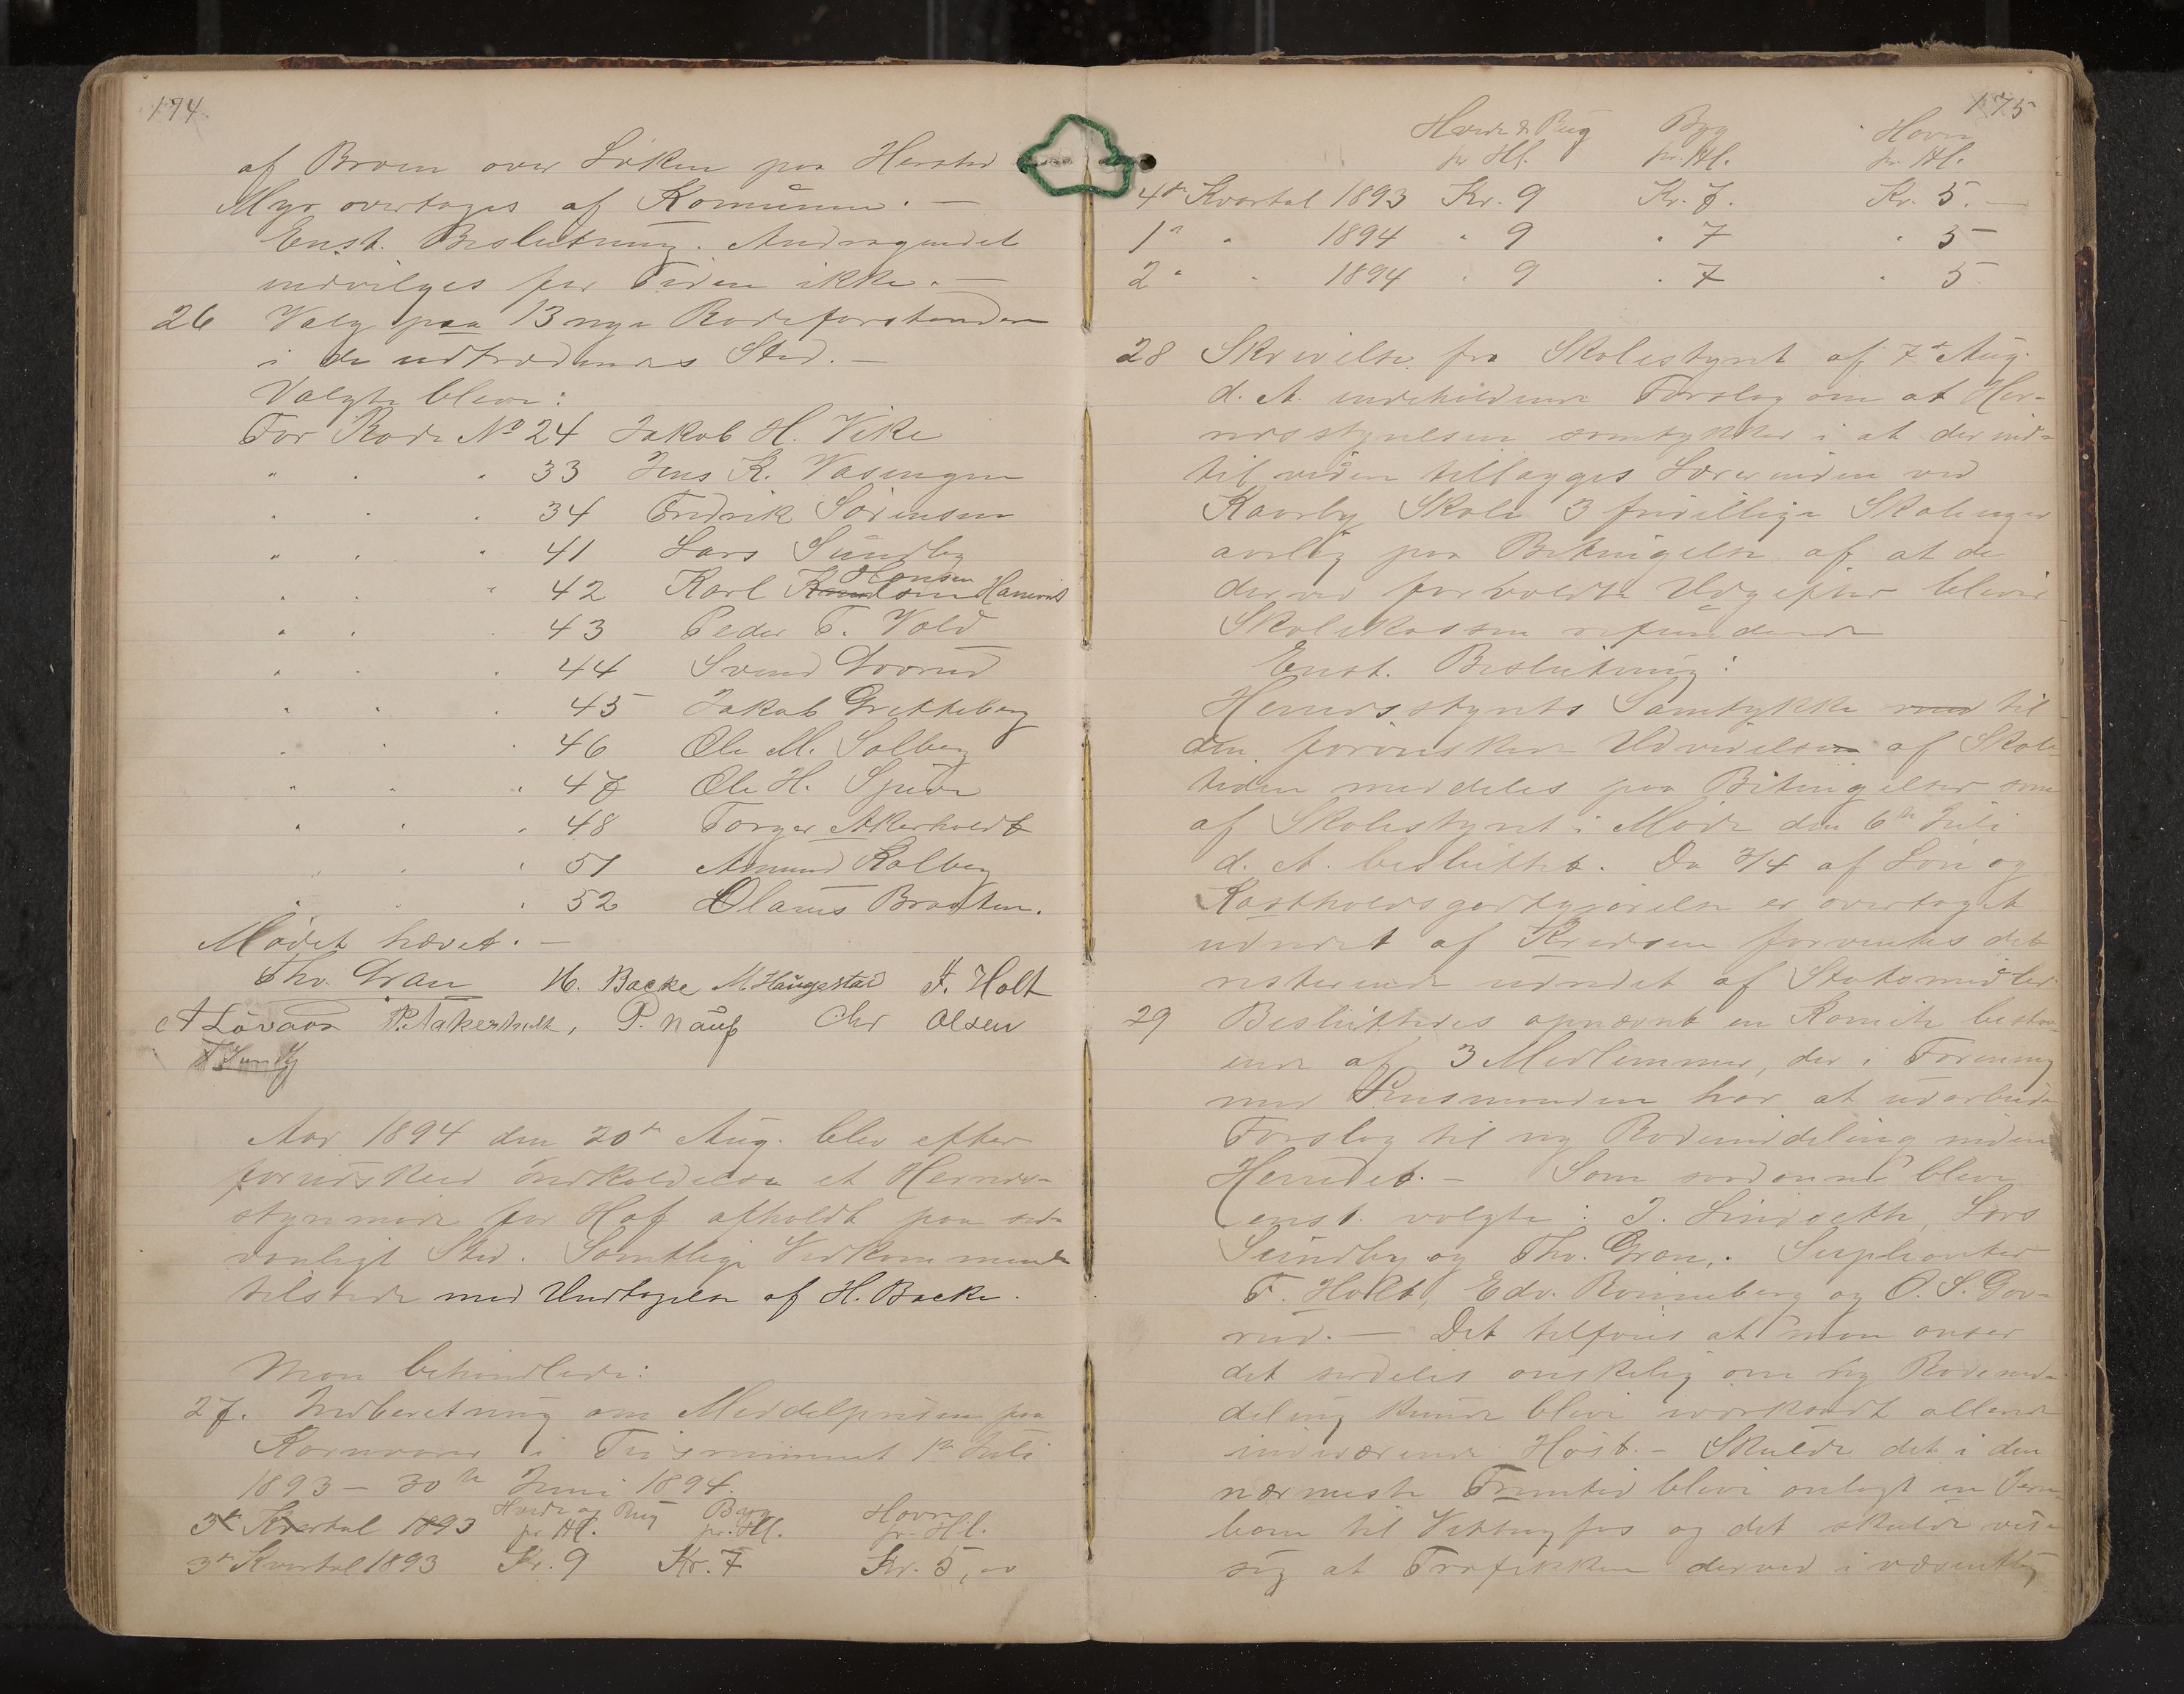 174.
af Broen over Löken paa Hersted
Myr overtages af Komunen. —
Enst. Beslutning. Andragendet
indvilges for Tiden ikke. —
26 Valg paa 13 nye Rodeforstandere
i de udtrædendes Sted. —
Valgte bleve:
For Rode No 24 Jakob H. Vike
" " " 33 Jens K. Vasengen
" " " 34 Fredrik Sörensen
" " " 41 Lars Sundby
Hansen
" " " 42 Karl Knudsen
" " " 43 Peder T. Vold
" " " 44 Svend Gorrud
" " " 45 Jakob Gretteberg
" " " 46 Ole M. Solberg
" " " 47 Ole H.
" " " 48 Torger Akerholdt
" " " 51 Amund Kolberg
" " " 52 Olaus Braaten.
Mödet hævet. —
Thv. Gran H. Backe M. Haugestad F. Holt
A Lövaas P. Aakerholt, P. Nauf Chr Olsen
Aar 1894 den 20de Aug. blev efter
forudskeed Indkaldelse et Herreds-
styremöde for Hof afholdt paa sed-
vanligt Sted. Samtlige Vedkommende
tilstede med Undtagelse af H. Backe.
Man behandlede:
27. Indberetning om Middelprisen paa
Kornvarer i 1ste Juli
1893 — 30te Juni 1894.
Hvede og Rug Byg Havre
3de Kvartal 1893 pr Hl. pr. Hl. pr. Hl.
3de Kvartal 1893 Kr. 9 Kr. 7 Kr. 5,00
175
Hvede & Rug Byg Havre
pr Hl. pr. Hl. pr. Hl.
4de Kvartal 1893 Kr. 9 Kr. 7. Kr. 5. —
1" " 1894 " 9 " 7 " 5
2" " 1894 " 9 " 7 " 5
28 Skrivelse fra Skolestyret af 7de Aug.
d. A. indeholdende Forslag om at Her-
redsstyrelsen samtykker i at der ind-
til videre tillægges Lærerinden ved
Skole 3 frivillige Skoleuger
aarlig paa Betingelse af at de
derved forvoldte Udgifter bliver
Skolekassen refunderede
Enst. Beslutning:
Herredsstyrets Samtykke med til
den forönskede Udvidelsen af Skole-
tiden meddeles paa Betingelser som
af Skolestyret i Möde den 6te Juli
d. A. besluttet. Da 3/4 af Lön og
Kostholdsgodtgjörelse er overtaget
udredet af Kredsen forventes det
resterende udredet af Statsmidler.
29 Besluttedes opnævnt en Komite bestaa-
ende af 3 Medlemmer, der i Forening
med Lensmanden har at udarbeide
Forslag til ny Rodeinddeling inden
Herredet. — Som saadanne bleve
enst. valgte: J. Lindseth, Lars
Sundby og Thv. Gran. Suplianter
F. Holt, Edv. Rönneberg og O. S. Gor-
rud. — Det tilföies at man anser
det særdeles önskelig om ny Rodeind-
deling kunde blive iværksat allerede
indeværende Höst. — Skulde det i den
nærmeste Fremtid blive anlagt en Jern-
bane til Vittingfos og det skulde vise
sig at Trafikken derved i væsentlig